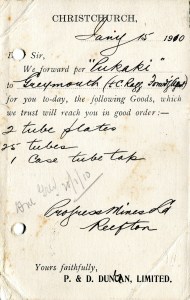 CHRISTCHURCH,
Jany 15 1910
Dear Sir,
We forward per "Pukaki"
to Greymouth
for you to-day, the following Goods, which
we trust will reach you in good order:—
2 tube plates
25 tubes
1 case tube tap
Progress Mines Ld
Reefton
Yours faithfully,
P. & D. DUNCAN, LIMITED.